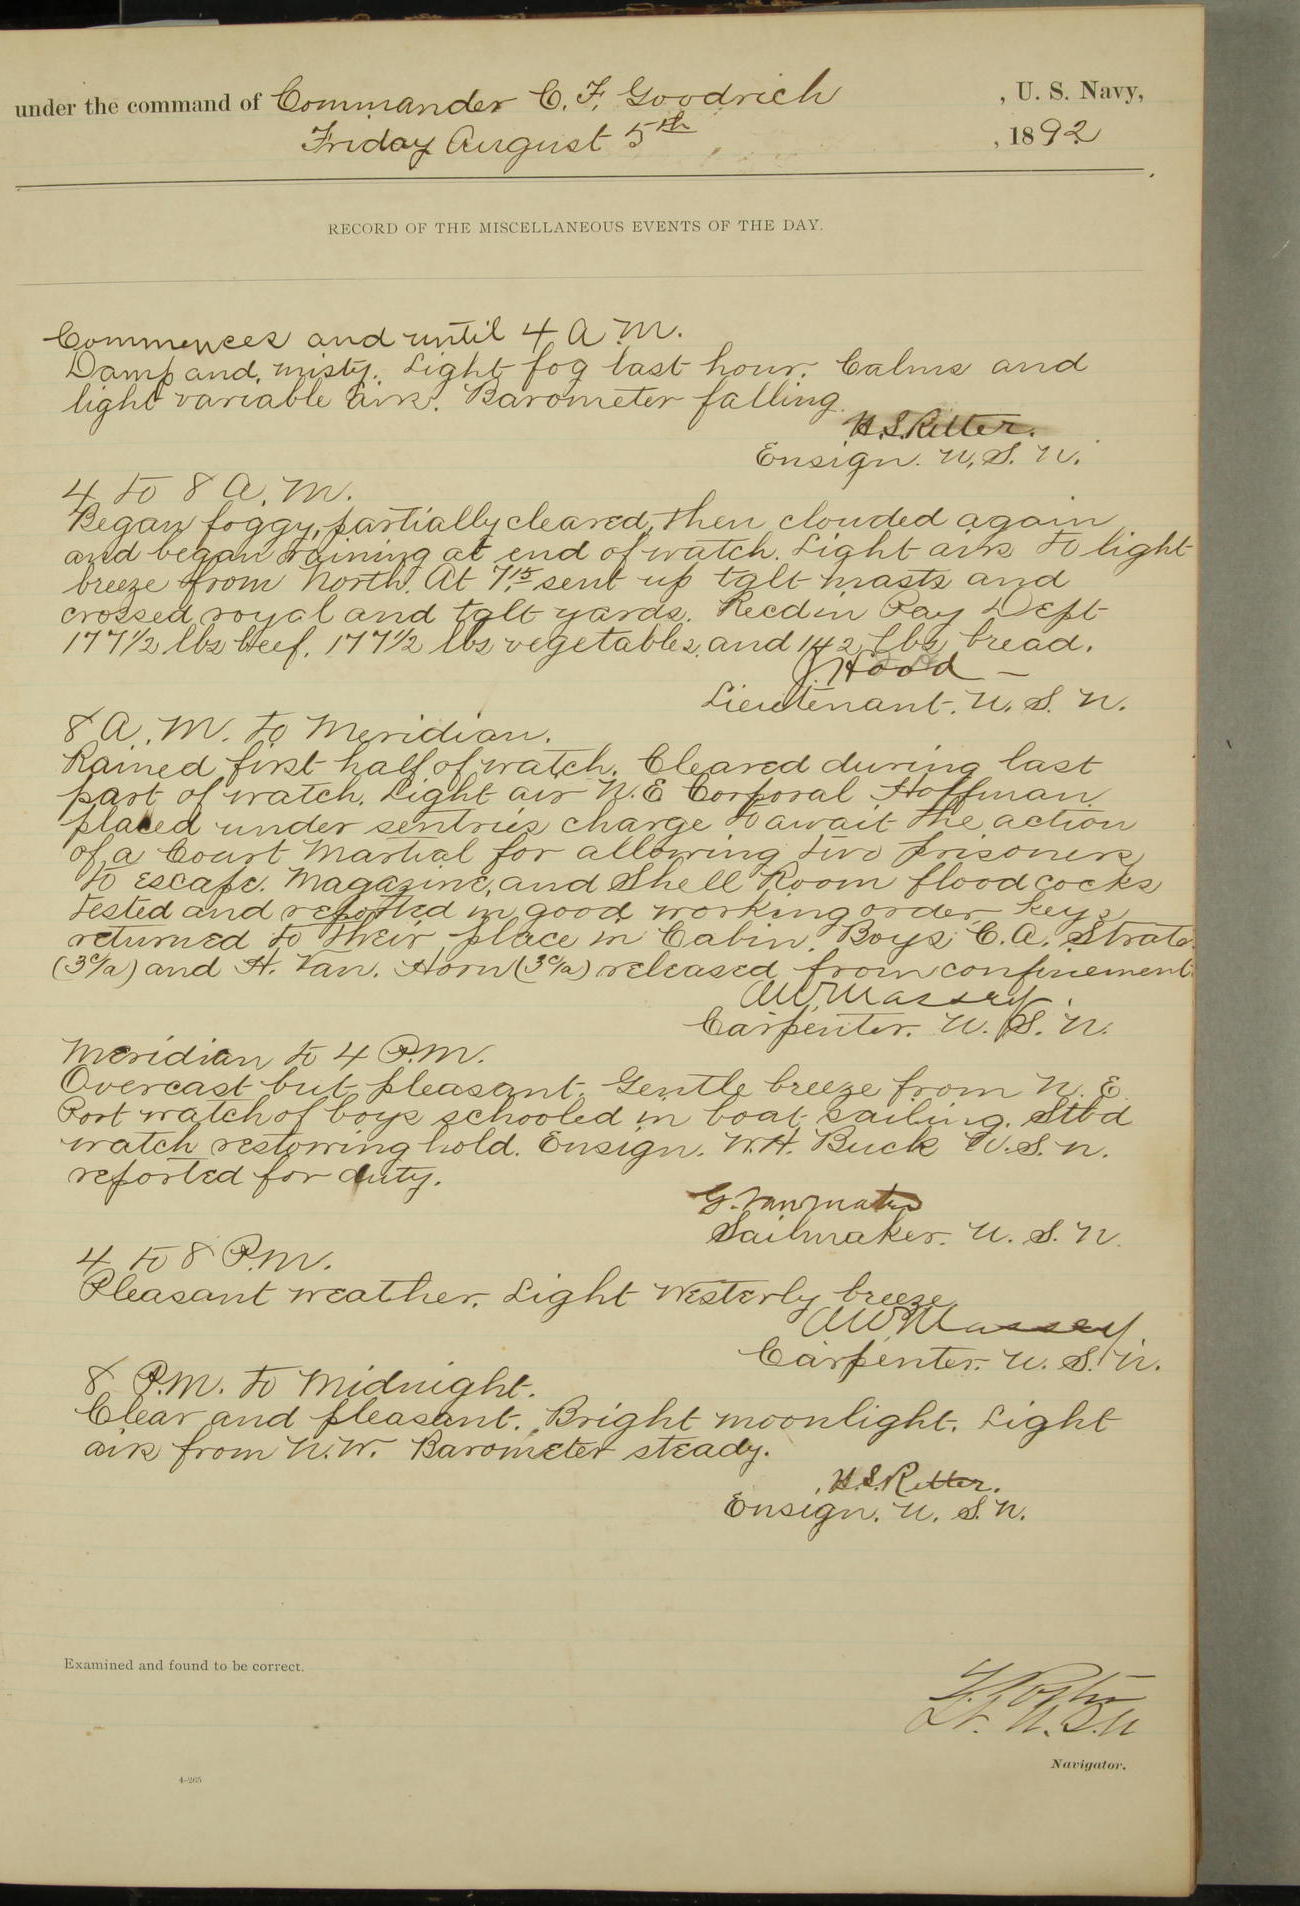 under the command of Commander C. F. Goodrich , U. S. Navy,
Friday August 5th , 1892
RECORD OF THE MISCELLANEOUS EVENTS OF THE DAY.
Commences and until 4 A.M.
Damp and misty. Light fog last hour. Calms and
light variable airs. Barometer falling.
H.S. Ritter.
Ensign. U.S.N.
4 to 8 A.M.
Began foggy, partially cleared, then clouded again
and began raining at end of watch. Light airs to light
breeze from North. At 7.15 sent up tglt masts and
crossed royal and tglt yards. Recd in Pay Dept
177 1/2 lbs beef. 177 1/2 lbs vegetables, and 142 lbs bread.
J Hood
Lieutenant. U.S.N.
8 A.M. to Meridian.
Rained first half of watch. Cleared during last
part of watch. Light air N.E Corporal Hoffman
placed under sentries charge to await the action
of a Court Martial for allowing two prisoners
to escape. Magazine, and Shell Room flood cocks
tested and reported in good working order. Keys
returned to their place in Cabin. Boys C.A. Strate
(3c/a) and H. Van. Horn (3c/a) released from confinement.
AW Massey.
Carpenter. U.S.N.
Meridian to 4 P.M.
Overcast but pleasant. Gentle breeze from N.E.
Port watch of boys schooled in boat sailing. Stb'd
watch restowing hold. Ensign. W.H. Buck U.S.N.
reported for duty.
G. Van Mater
Sailmaker. U.S.N.
4 to 8 P.M.
Pleasant weather. Light westerly breeze
AW Massey.
Carpenter. U.S.N.
8 P.M. to Midnight.
Clear and pleasant. Bright moonlight. Light
airs from N.W. Barometer steady.
H.S. Ritter.
Ensign. U.S.N.
Examined and found to be correct.
Lt. U.S.N
Navigator.
4-265